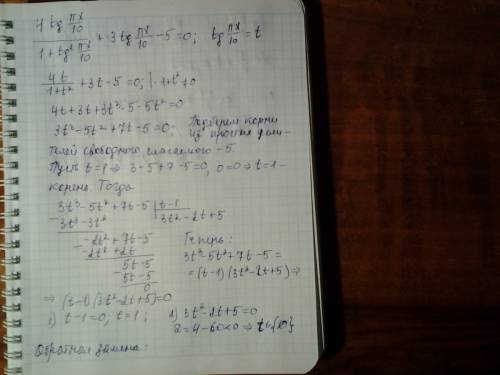 4 tg πx/10 / 1 + tg² πx/10 + 3 tg πx/10 - 5 = 0; tg πx/10 = t
4t/1+t² + 3t - 5 = 0; | · 1+t² ≠ 0
4t + 3t + 3t³ - 5 - 5t² = 0
3t³ - 5t² + 7t - 5 = 0; Подберем корни
из простых делителей
свободного слагаемого -5.
Пусть t = 1 ⇒ 3 - 5 + 7 - 5 = 0, 0 = 0 ⇒ t = 1 -
корень. Тогда
3t³ - 5t² + 7t - 5 | t - 1
- 3t³ - 3t² 3t² - 2t + 5
-2t² + 7t - 5 Теперь:
- -2t² + 2t 3t³ - 5t² + 7t - 5 =
5t - 5 = (t-1)(3t² - 2t + 5) ⇒
- 5t - 5
0
⇒ (t-1)(3t² - 2t + 5) = 0
1) t - 1 = 0, t = 1; 2) 3t² - 2t + 5 = 0
D = 4 - 60 < 0 ⇒ t ∈ {∅}
Обратная замена: